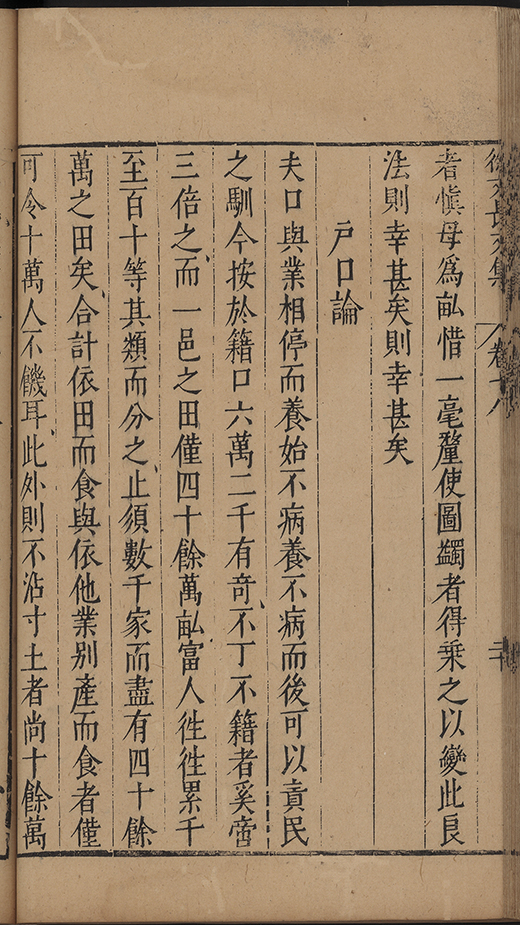 徐文長文集 卷十八 二十
者慎毋爲畝惜一毫釐使圖蠲者得乗之以變此良
法則幸甚矣則幸甚矣
戸口論
夫口與業相停而養始不病養不病而後可以責民
之馴今按於籍口六萬二千有奇不丁不籍者奚啻
三倍之而一邑之田僅四十餘萬畝富人徃徃累千
至百十等其類而分之止須數千家而盡有四十餘
萬之田矣合計依田而食與依他業别產而食者僅
可令十萬人不饑耳此外則不沾寸土者尚十餘萬